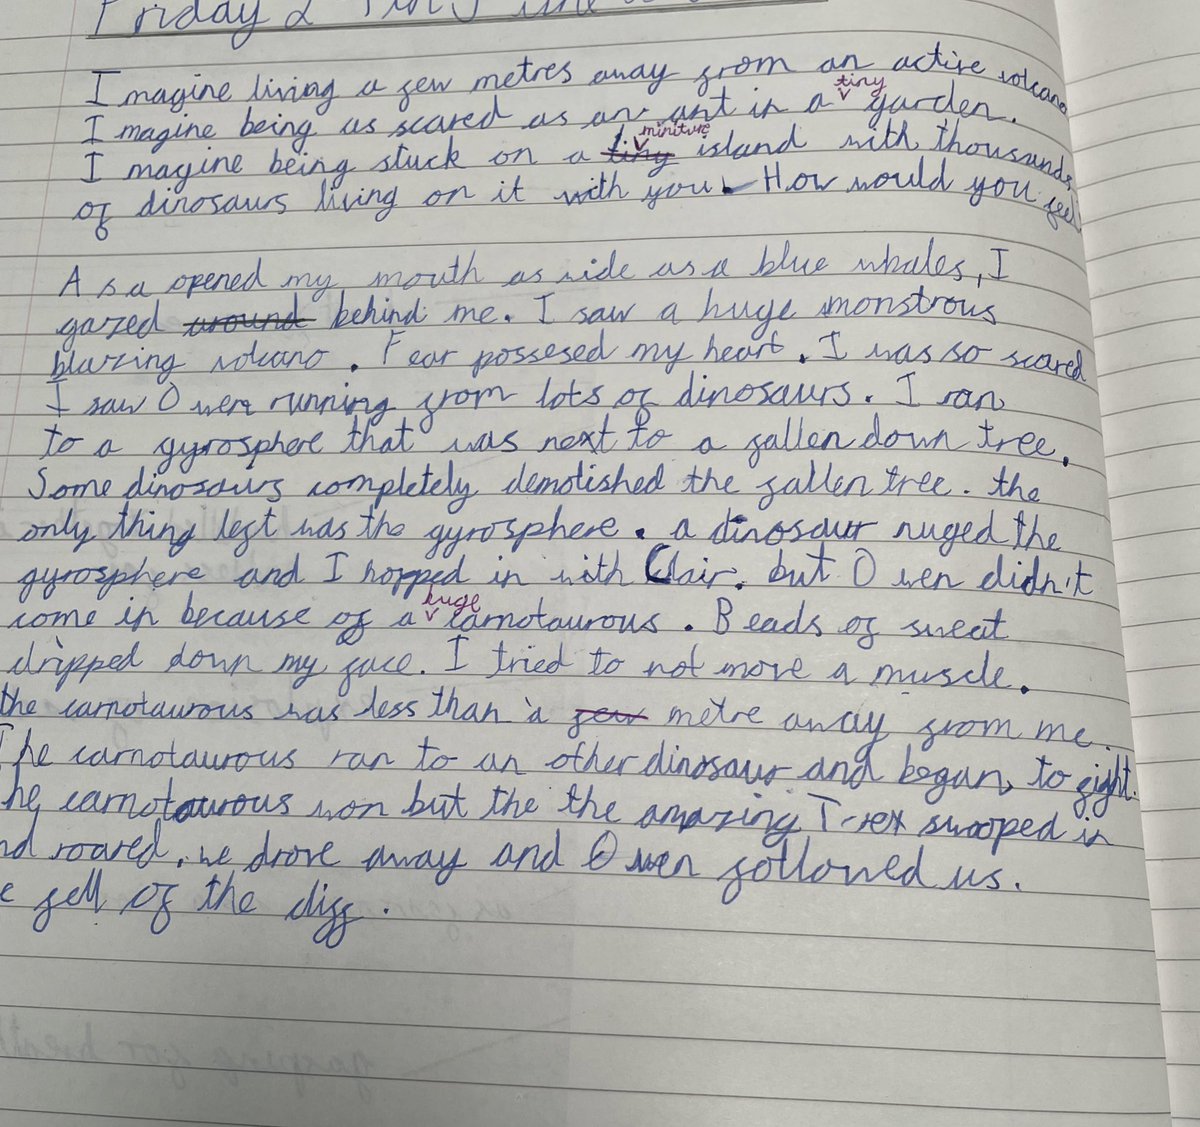 Friday 2
Imagine living a few metres away from an active volcano
Imagine being as scared as an ant in a tiny garden.
Imagine being stuck on a tiny miniture island with thousands
of dinosaurs living on it with you. How would you feel
As a opened my mouth as wide as a blue whales, I
gazed around behind me. I saw a huge monstrous
blazing volcano. Fear possesed my heart. I was so scared
I saw Owen running from lots of dinosaurs. I ran
to a gyrosphere that was next to a fallen down tree.
Some dinosaurs completely demolished the fallen tree. the
only thing left was the gyrosphere. a dinosaur nuged the
gyrosphere and I hopped in with Clair. but Owen didn't
come in because of a huge carnotaurous. Beads of sweat
dripped down my face. I tried to not move a muscle.
the carnotaurous was less than a few metre away from me.
The carnotaurous ran to an other dinosaur and began to fight.
he carnotaurous won but the the amazing T-rex swooped in
nd roared, we drove away and Owen followed us.
e fell of the cliff.